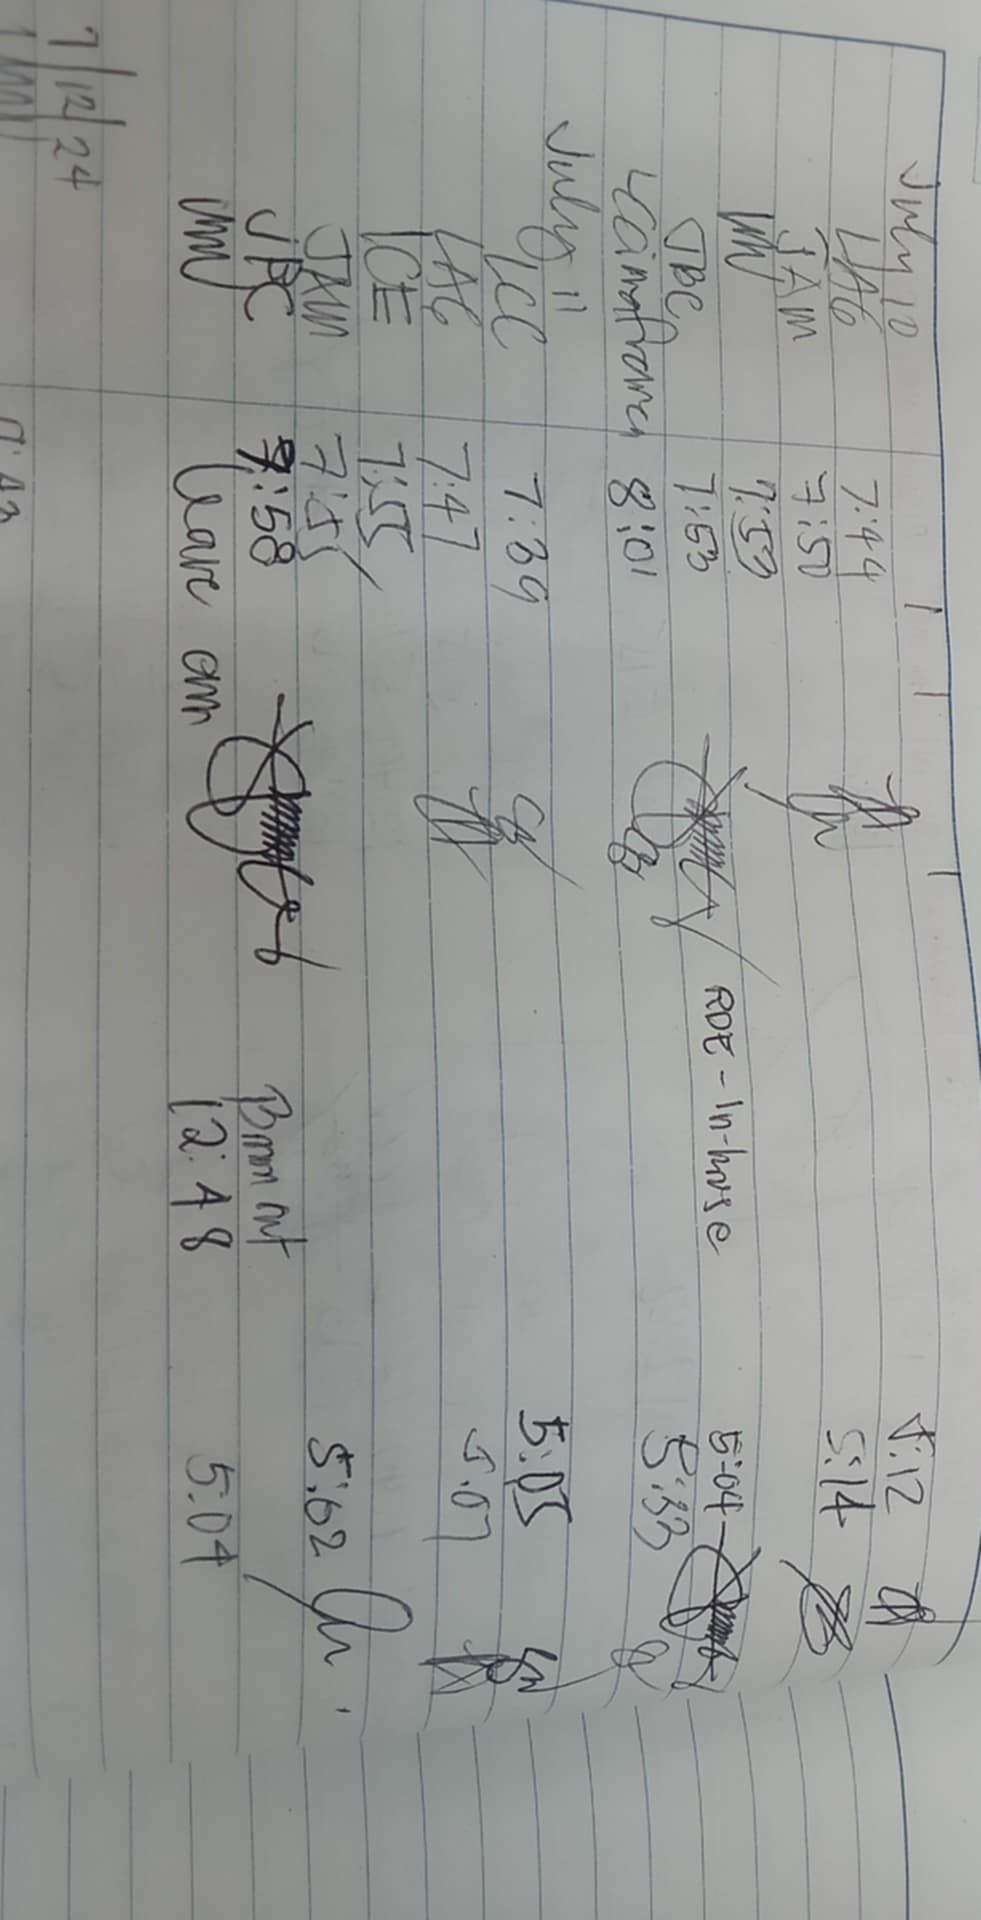 July 10
LAG 7:44 5:12
JAM 7:50 5:14
7:59 RDE - In-house
JBC 7:53 5:04
8:01 5:33
July 11
LCC 7:39 5:05
LAG 7:47 5:07
ICE 7:55
JAM 7:55 5:02
JBC 7:58
Leave am 12:48 5:04
7/12/24